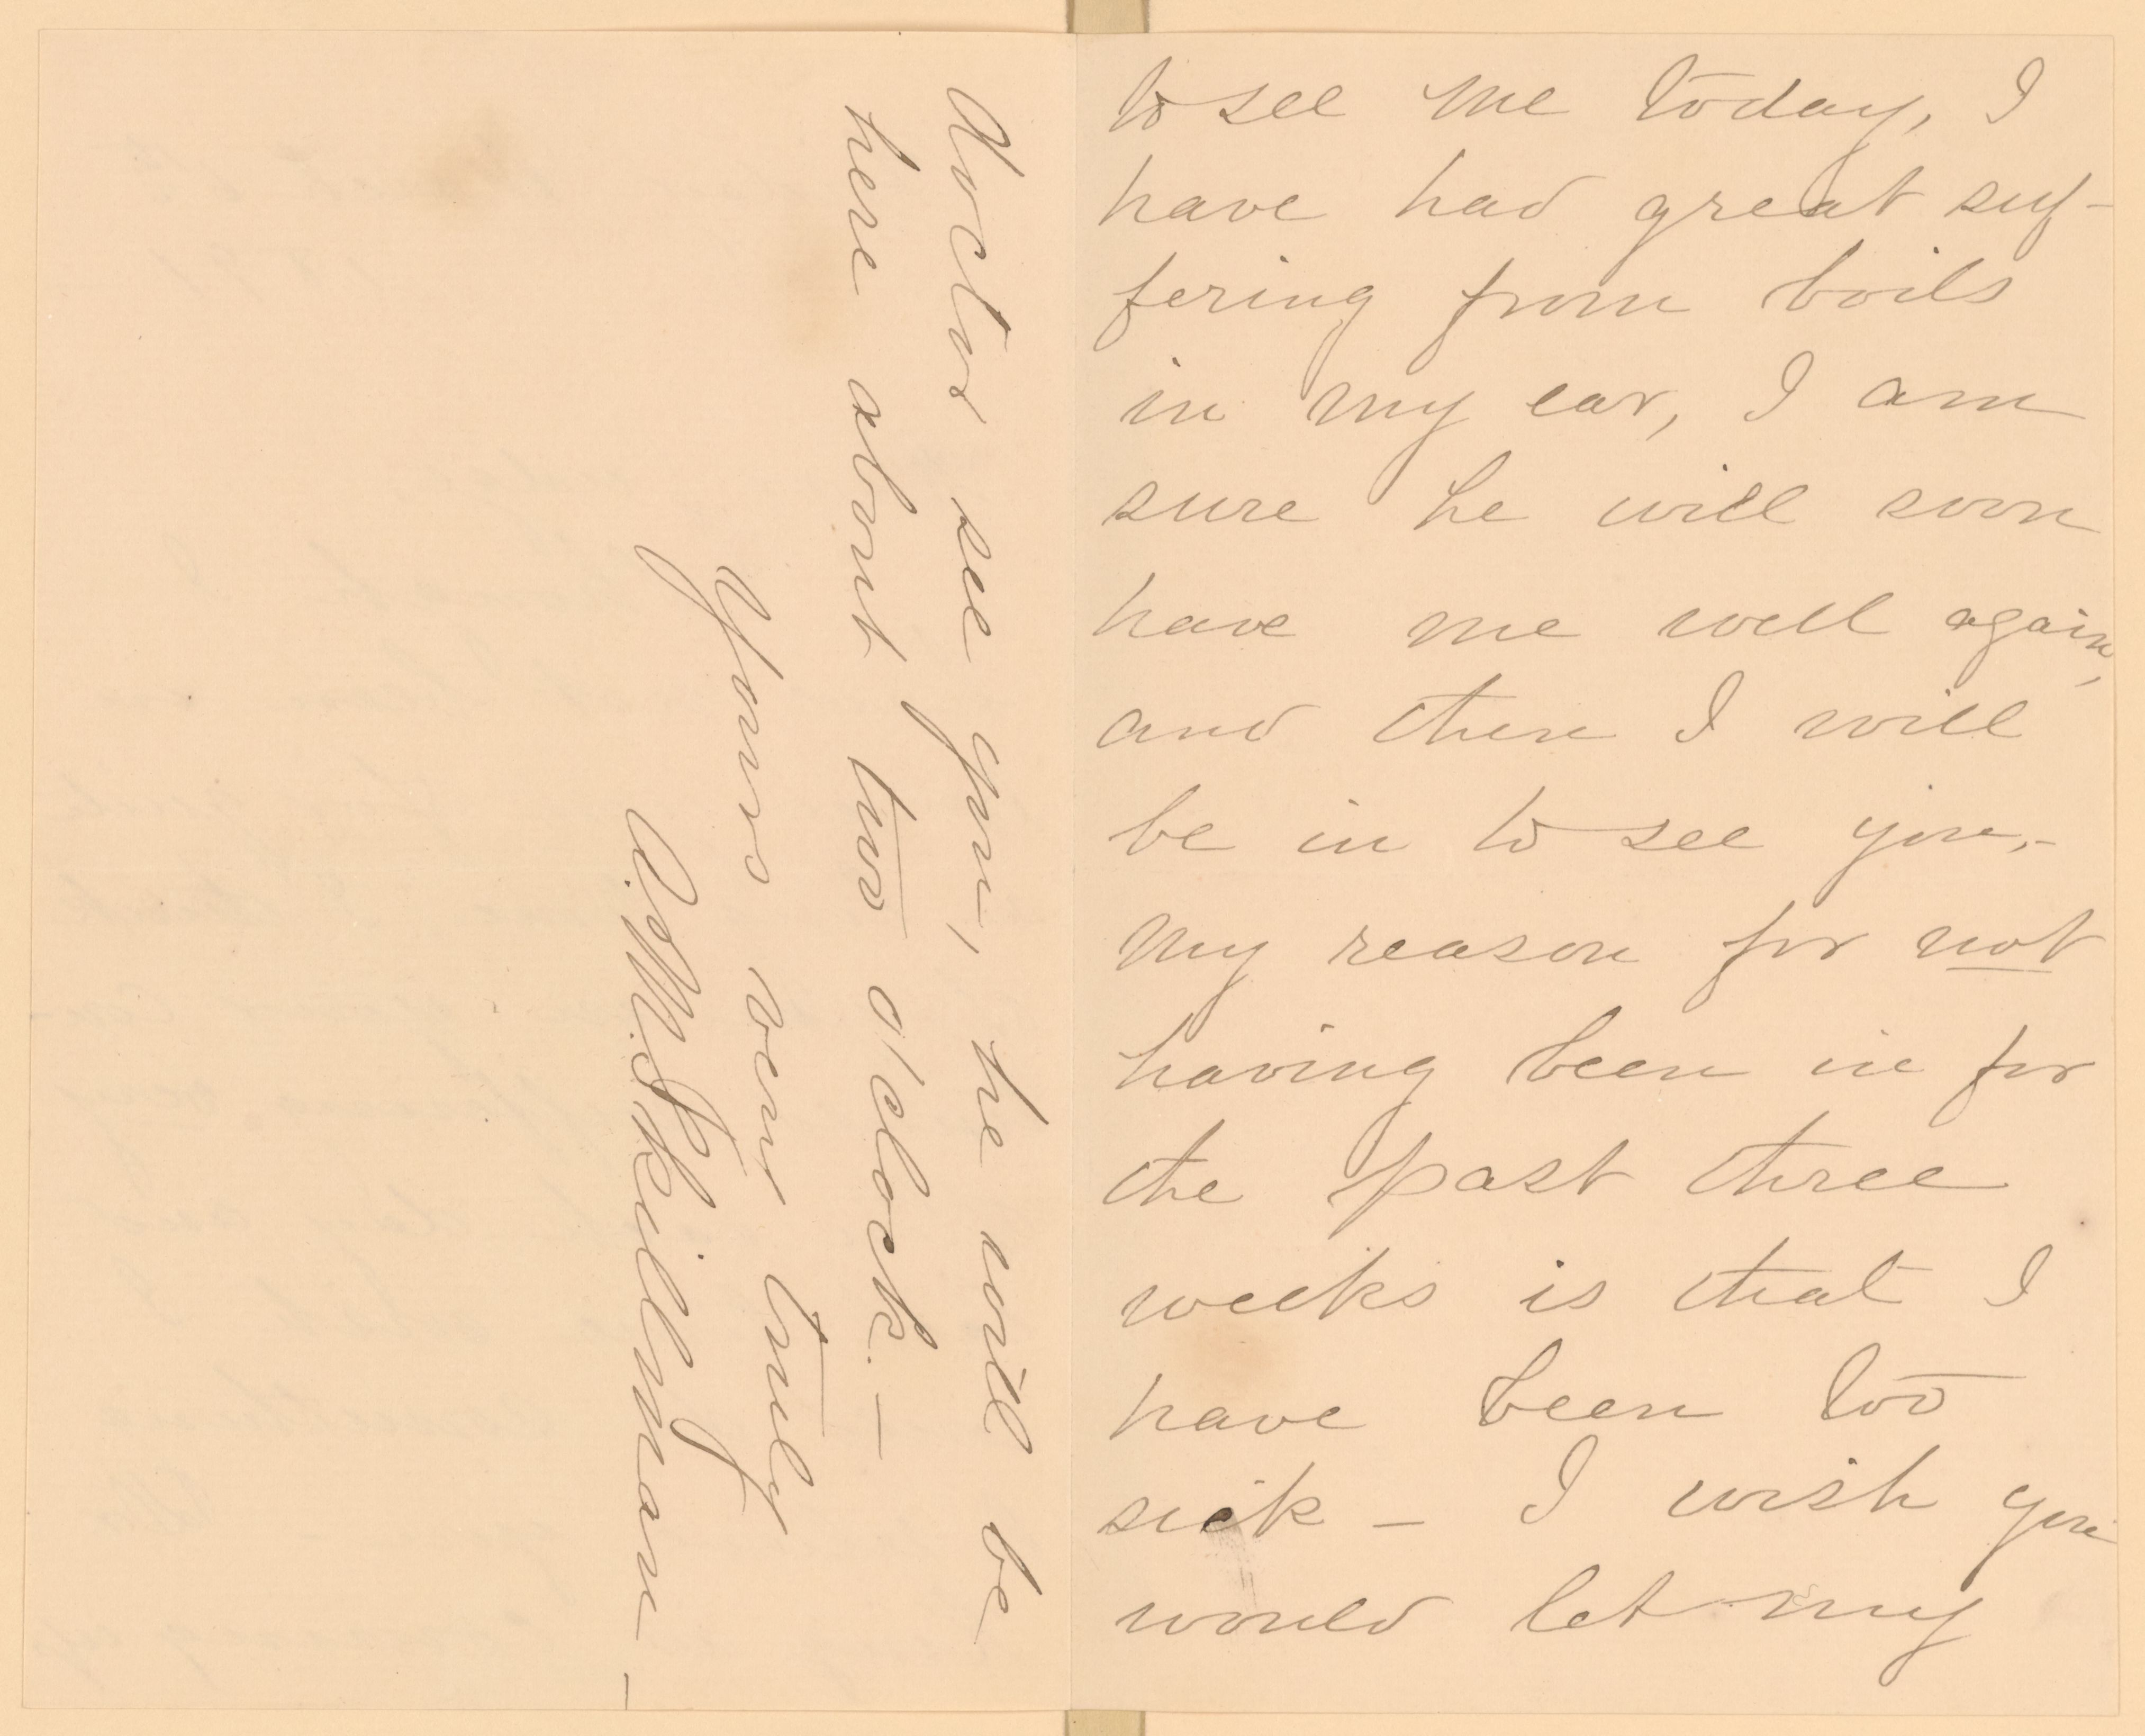 to see me today, I
have had great suf-
fering from boils
in my ear, I am
sure he will soon
have me well again,
and then I will
be in to see you,-
my reason for not
having been in for
the past three
weeks is that I
have been too
sick - I wish you
would let my
doctor see you, he will be
here about two o'clock. -
Yours very truly
A. M. Spillman -